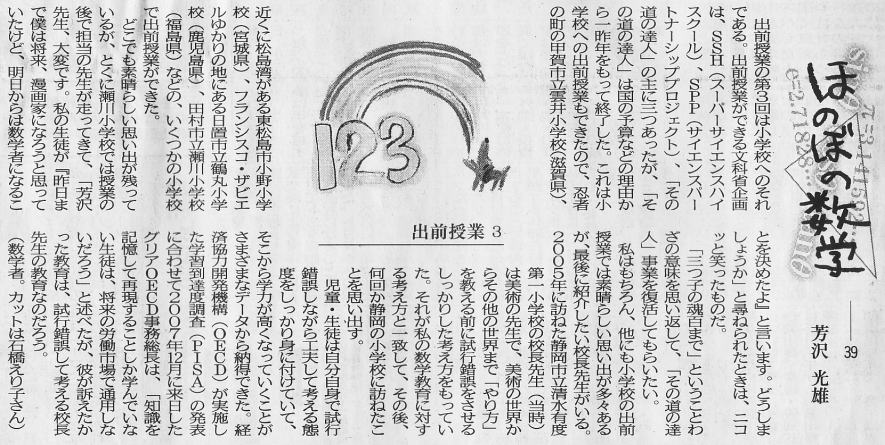 ほのぼの数学
39
芳沢 光雄
π=3.141592
e=2.71828…
出前授業の第3回は小学校へのそれ
である。出前授業ができる文科省企画
は、SSH(スーパーサイエンスハイ
スクール)、SPP(サイエンスパー
トナーシッププロジェクト)、「その
道の達人」の主に三つあったが、「そ
の道の達人」は国の予算などの理由か
ら一昨年をもって終了した。これは小
学校への出前授業もできたので、忍者
の町の甲賀市立雲井小学校(滋賀県)、
123
出前授業 3
近くに松島湾がある東松島市小野小学
校(宮城県)、フランシスコ・ザビエ
ルゆかりの地にある日置市立鶴丸小学
校(鹿児島県)、田村市立瀬川小学校
(福島県)などの、いくつかの小学校
で出前授業ができた。
どこでも素晴らしい思い出が残って
いるが、とくに瀬川小学校では授業の
後で担当の先生が走ってきて、「芳沢
先生、大変です。私の生徒が『昨日ま
で僕は将来、漫画家になろうと思って
いたけど、明日からは数学者になるこ
とを決めたよ』と言います。どうしま
しょうか」と尋ねられたときは、ニコ
ッと笑ったものだ。
「三つ子の魂百まで」ということわ
ざの意味を思い返して、「その道の達
人」事業を復活してもらいたい。
私はもちろん、他にも小学校の出前
授業では素晴らしい思い出が多々ある
が、最後に紹介したい校長先生がいる。
2005年に訪ねた静岡市立清水有度
第一小学校の校長先生(当時)
は美術の先生で、美術の世界か
らその他の世界まで「やり方」
を教える前に試行錯誤をさせる
しっかりした考え方をもってい
た。それが私の数学教育に対す
る考え方と一致して、その後、
何回か静岡の小学校に訪ねたこ
とを思い出す。
児童・生徒は自分自身で試行
錯誤しながら工夫して考える態
度をしっかり身に付けていて、
そこから学力が高くなっていくことが
さまざまなデータから納得できた。経
済協力開発機構(OECD)が実施し
た学習到達度調査(PISA)の発表
に合わせて2007年12月に来日した
グリアOECD事務総長は、「知識を
記憶して再現することしか学んでいな
い生徒は、将来の労働市場で通用しな
いだろう」と述べたが、彼が訴えたか
った教育は、試行錯誤して考える校長
先生の教育なのだろう。
(数学者。カットは石橋えり子さん)